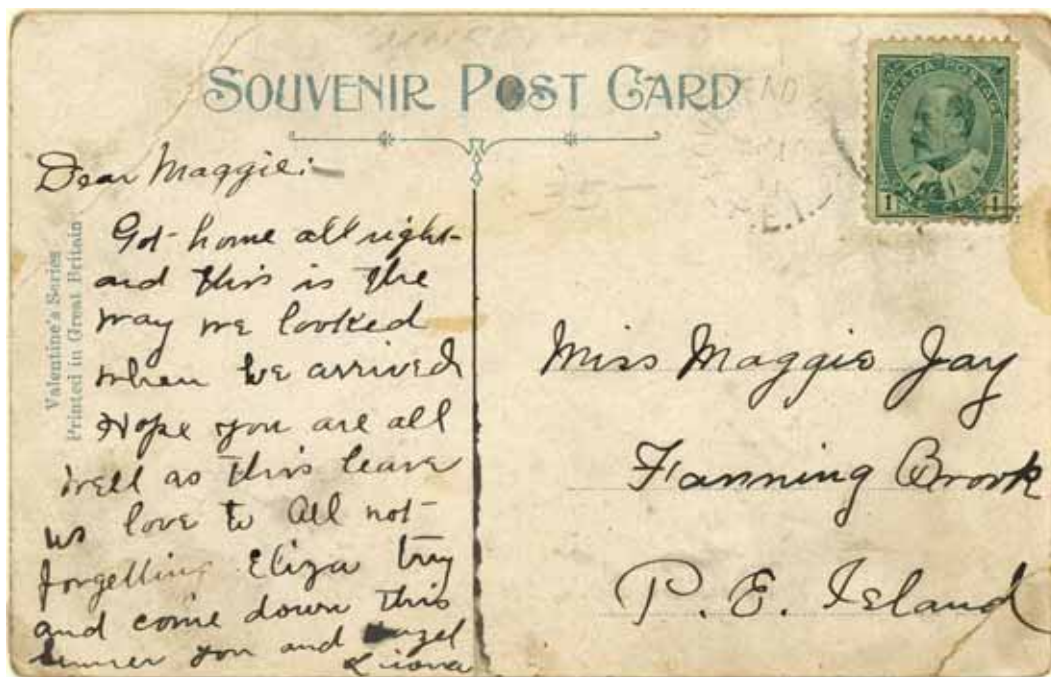 SOUVENIR POST CARD
Valentine's Series
Printed in Great Britain
Dear Maggie:
Got home all right
and this is the
way we looked
when we arrived
Hope you are all
well as this leave
us love to all not
forgetting Eliza try
and come down this
you and
CANADA POSTAGE
1 1
P.E.I.
35
Miss Maggie Jay
Fanning Brook
P. E. Island